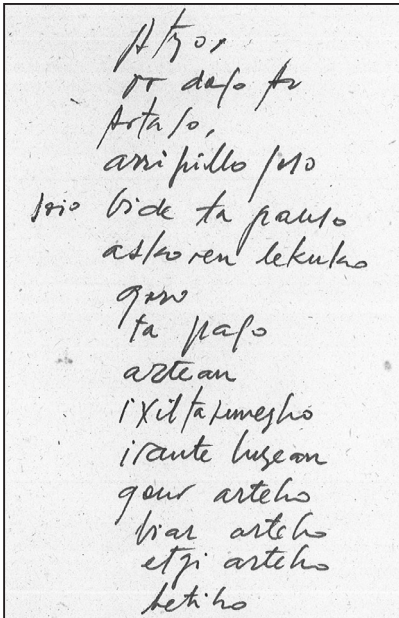 or dago
arri pillo
bide ta pauso
askoren lekuko
ta pago
artean
ixiltasunezko
iraute luzean
gaur arteko
biar arteko
etzi arteko
betiko